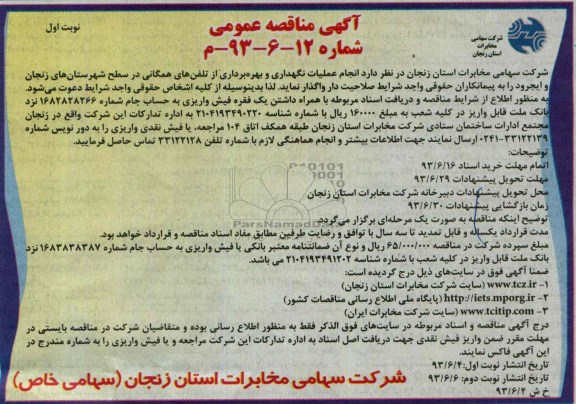 آگهی مناقصه عمومی
شماره ۱۲-۶-۹۳-م
نوبت اول
شرکت سهامی
مخابرات
استان زنجان
شرکت سهامی مخابرات استان زنجان در نظر دارد انجام عملیات نگهداری و بهره‌برداری از تلفن‌های همگانی در سطح شهرستان‌های زنجان
و ایجرود را به پیمانکاران حقوقی واجد شرایط صلاحیت دار واگذار نماید. لذا بدینوسیله از کلیه اشخاص حقوقی واجد شرایط دعوت می‌شود.
به منظور اطلاع از شرایط مناقصه و دریافت اسناد مربوطه با همراه داشتن یک فقره فیش واریزی به حساب جام شماره ۱۶۸۲۸۲۸۲۶۶ نزد
بانک ملت قابل واریز در کلیه شعب به مبلغ ۱۶۰۰۰۰ ریال با شماره شناسه ۲۱۰۴۱۹۳۴۹۰۲۲۰ به اداره تدارکات این شرکت واقع در زنجان
مجتمع ادارات ساختمان ستادی شرکت مخابرات استان زنجان طبقه همکف اتاق ۱۰۴ مراجعه، یا فیش نقدی واریزی را به دور نویس شماره
۳۳۱۲۲۱۳۹-۰۲۴۱ ارسال نمایند جهت اطلاعات بیشتر و انجام هماهنگی لازم با شماره تلفن ۳۳۱۲۲۱۲۸ تماس حاصل فرمایید.
توضیحات:
اتمام مهلت خرید اسناد ۹۳/۶/۱۶
مهلت تحویل پیشنهادات ۹۳/۶/۲۹
محل تحویل پیشنهادات دبیرخانه شرکت مخابرات استان زنجان
زمان بازگشایی پیشنهادات ۹۳/۶/۳۰
توضیح اینکه مناقصه به صورت یک مرحله‌ای برگزار می‌گردد.
مدت قرارداد یکساله و قابل تمدید تا سه سال با توافق و رضایت طرفین مطابق مفاد اسناد مناقصه و قرارداد خواهد بود.
مبلغ سپرده شرکت در مناقصه ۶۵/۰۰۰/۰۰۰ ریال و نوع آن ضمانتنامه معتبر بانکی یا فیش واریزی به حساب جام شماره ۱۶۸۳۸۳۸۳۸۷ نزد
بانک ملت قابل واریز در کلیه شعب با شماره شناسه ۲۱۰۴۱۹۳۴۹۱۲۰۲ می باشد
ضمنا آگهی فوق در سایت‌های ذیل درج گردیده است:
۱- www.tcz.ir (سایت شرکت مخابرات استان زنجان)
۲- http://iets.mporg.ir (پایگاه ملی اطلاع رسانی مناقصات کشور)
۳- www.tcitip.com (سایت شرکت مخابرات ایران)
درج آگهی مناقصه و اسناد مربوطه در سایت‌های فوق الذکر فقط به منظور اطلاع رسانی بوده و متقاضیان شرکت در مناقصه بایستی در
مهلت مقرر ضمن واریز فیش نقدی جهت دریافت اصل اسناد به اداره تدارکات این شرکت مراجعه و یا فیش واریزی را به شماره مندرج در
این آگهی فاکس نمایند.
تاریخ انتشار نوبت اول: ۹۳/۶/۴
تاریخ انتشار نوبت دوم: ۹۳/۶/۶
خ ش ۹۳/۶/۴
شرکت سهامی مخابرات استان زنجان (سهامی خاص)